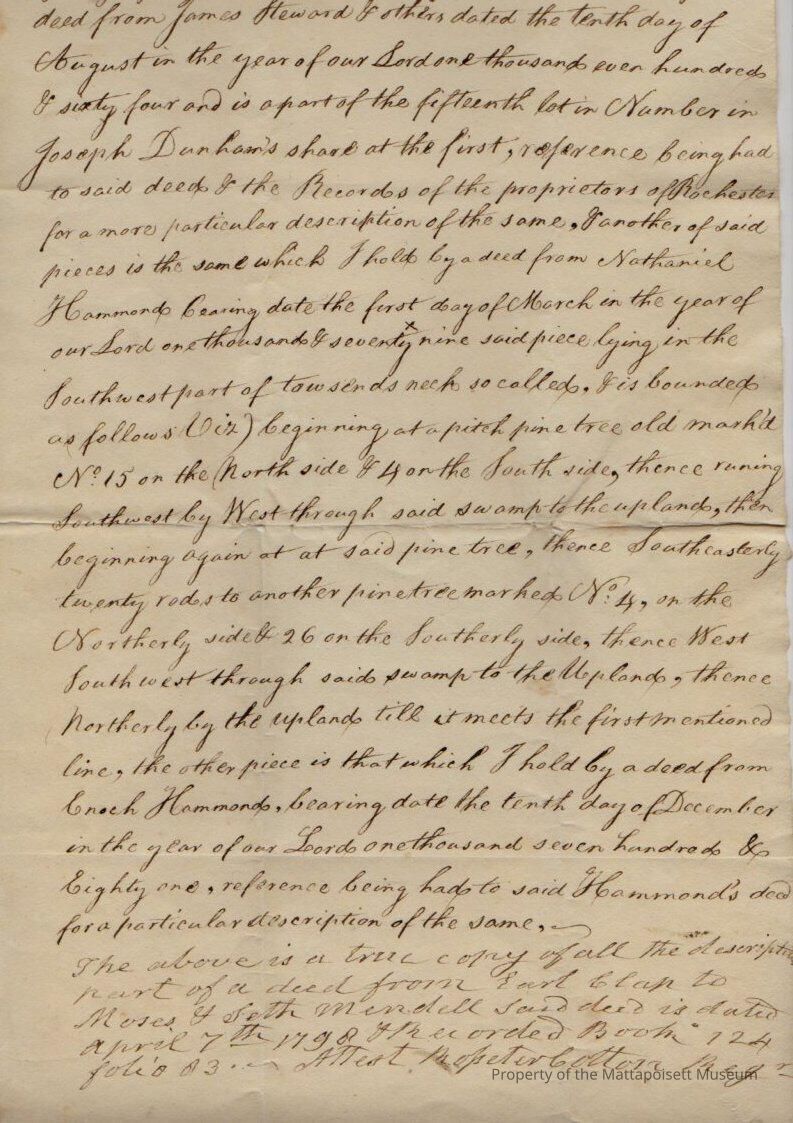 deed from James Steward & others dated the tenth day of
August in the year of our Lord one thousand even hundred
& sixty four and is a part of the fifteenth lot in Number in
Joseph Dunham's share at the first, reference being had
to said deed & the Records of the proprietors of Rochester
for a more particular description of the same, & another of said
pieces is the same which I hold by a deed from Nathaniel
Hammond bearing date the first day of March in the year of
our Lord one thousand & seventy x nine said piece lying in the
Southwest part of towsends neck so called, & is bounded
as follows Viz) beginning at a pitch pine tree old mark'd
No. 15 on the North side & 4 on the South side, thence runing
Southwest by West through said swamp to the upland, then
beginning again at at said pine tree, thence Southeasterly
twenty rods to another pine tree marked No. 4, on the
Northerly side & 26 on the Southerly side, thence West
Southwest through said swamp to the Upland, thence
Northerly by the upland till it meets the first mentioned
line, the other piece is that which I hold by a deed from
Enoch Hammond, bearing date the tenth day of December
in the year of our Lord one thousand seven hundred &
Eighty one, reference being had to said Hammond's deed
for a particular description of the same,
The above is a true copy of all the descriptive
part of a deed from Earl Clap to
Moses & Seth Mendell said deed is dated
april 7th 1798 & Recorded Book 124
folio 83. Attest Rosseter Cotton Regr
Property of the Mattapoisett Museum